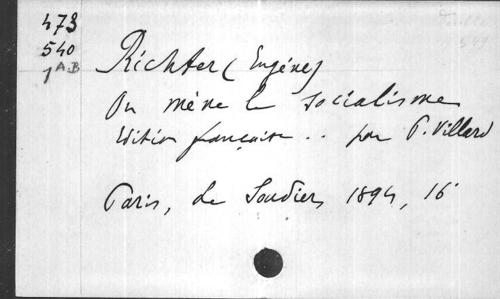 473
540
1 A.B
Richter (Eugène)
Ou mène le socialisme
édition française .. par P. Villard
Paris, Le Soudier, 1894, 16°